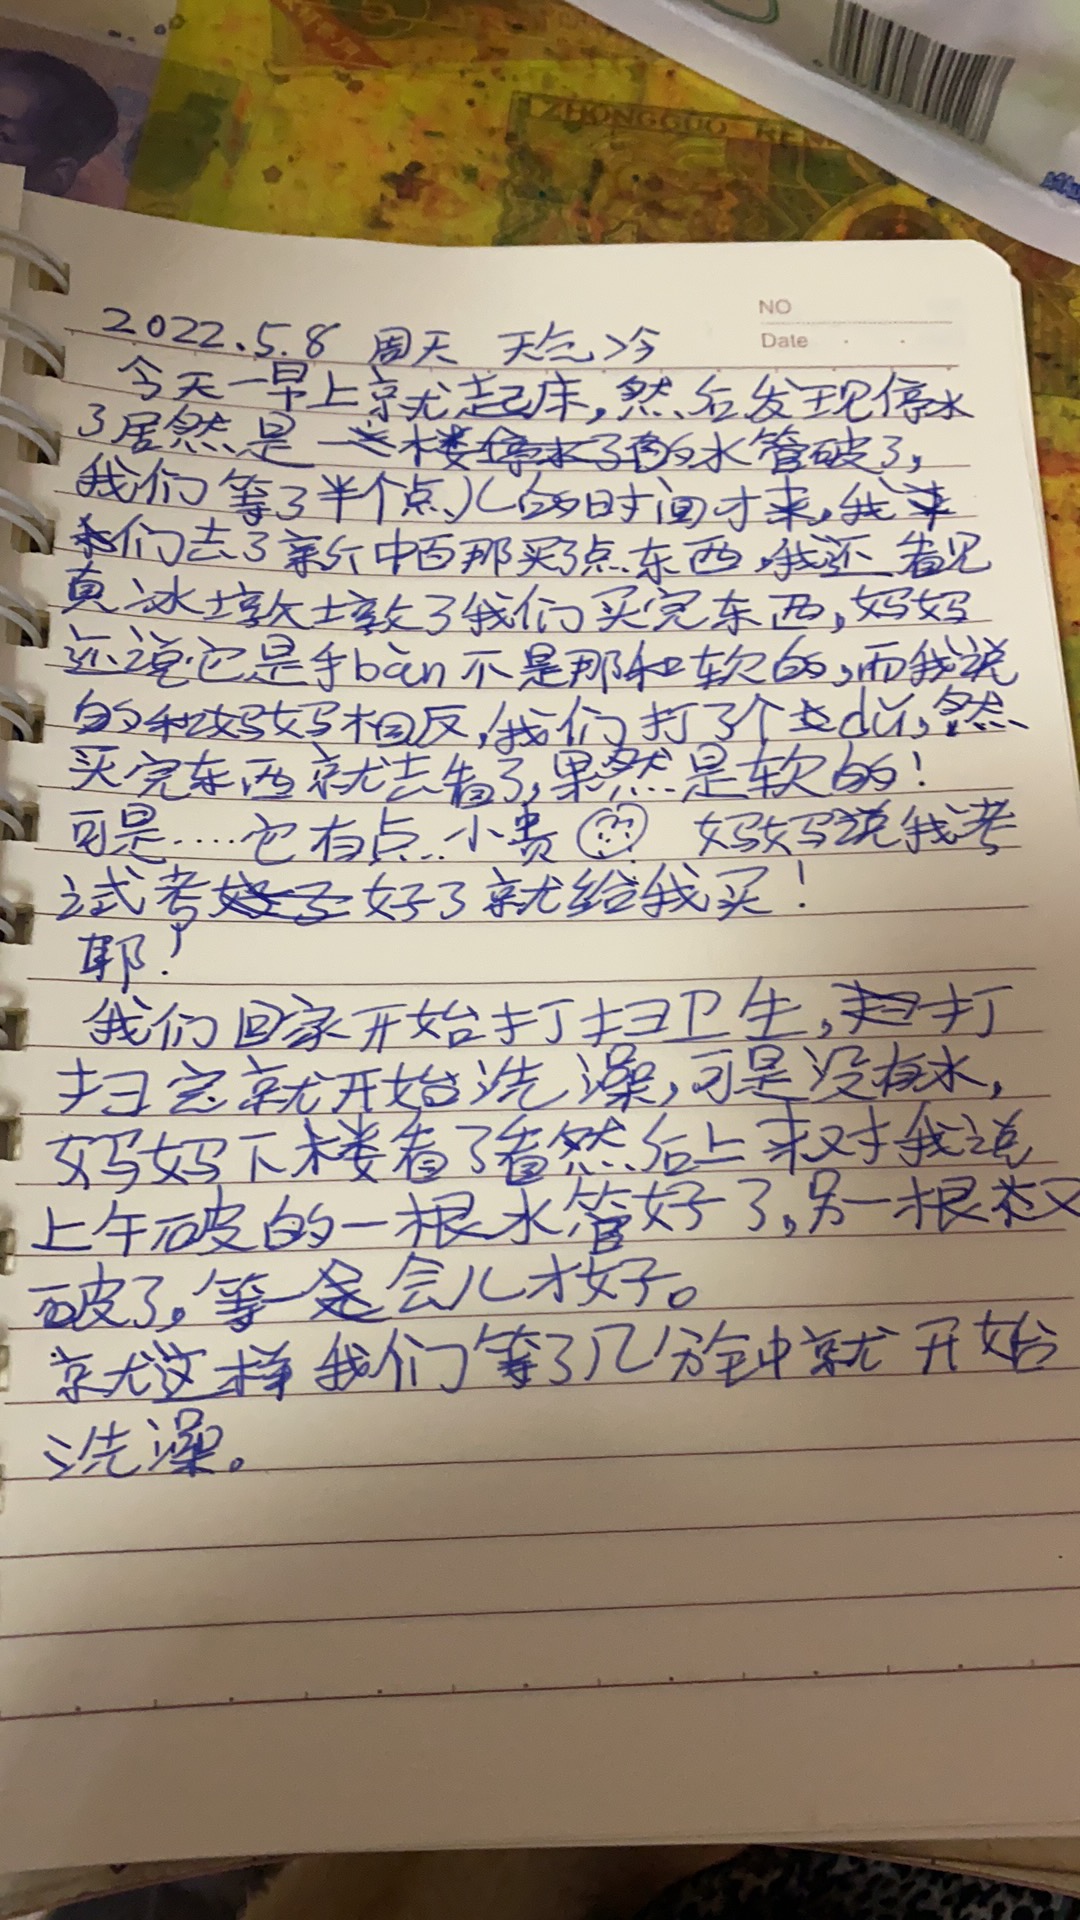 ZHONGGUO REN
NO
Date
2022.5.8 周天 天气冷
今天一早上就起床,然后发现停水
了居然是一楼停水了的水管破了,
我们等了半个点儿的时间才来,我
们去了新中百那买了点东西,我还看见
真冰墩墩了我们买完东西,妈妈
还说它是手bàn不是那种软的,而我说
的和妈妈相反,我们打了个dǔ,然
买完东西就去看了,果然是软的!
可是....它有点..小贵 妈妈说我考
试考好了就给我买!
耶!
我们回家开始打扫卫生,打
扫完就开始洗澡,可是没有水,
妈妈下楼看了看然后上来对我说
上午破的一根水管好了,另一根又
破了,等一会儿才好。
就这样我们等了几分钟就开始
洗澡。